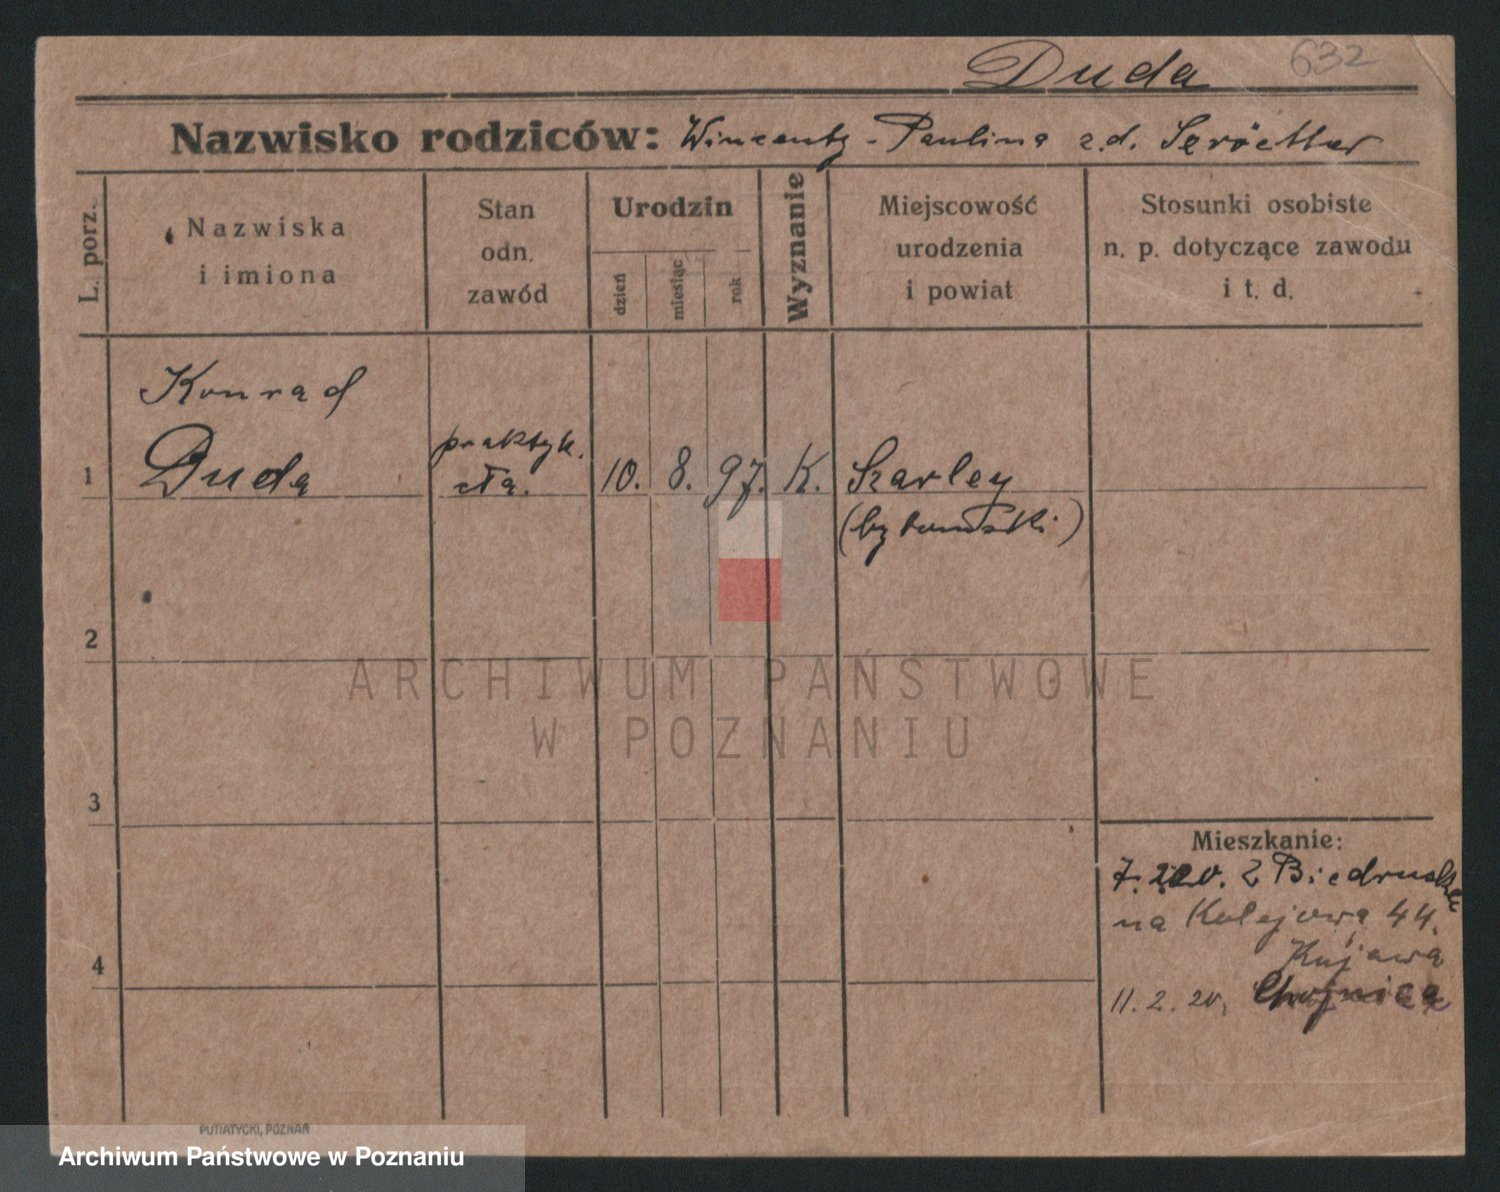 Duda 632
Nazwisko rodziców: Wincenty - Paulina z.d. Szröetter
L. porz.
Nazwiska
i imiona
Stan
odn.
zawód
Urodzin
dzień
miesiąc
rok
Wyznanie
Miejscowość
urodzenia
i powiat
Stosunki osobiste
n. p. dotyczące zawodu
i t. d.
Konrad
1 Duda praktyk. 10. 8. 97. K. Szarley
(bytomski)
2
3
4
Mieszkanie:
Z Biedruska
na Kolejową 44.
Kujawa
11.2.20, Chojnica
ARCHIWUM PAŃSTWOWE
W POZNANIU
PUTIATYCKI, POZNAŃ
Archiwum Państwowe w Poznaniu